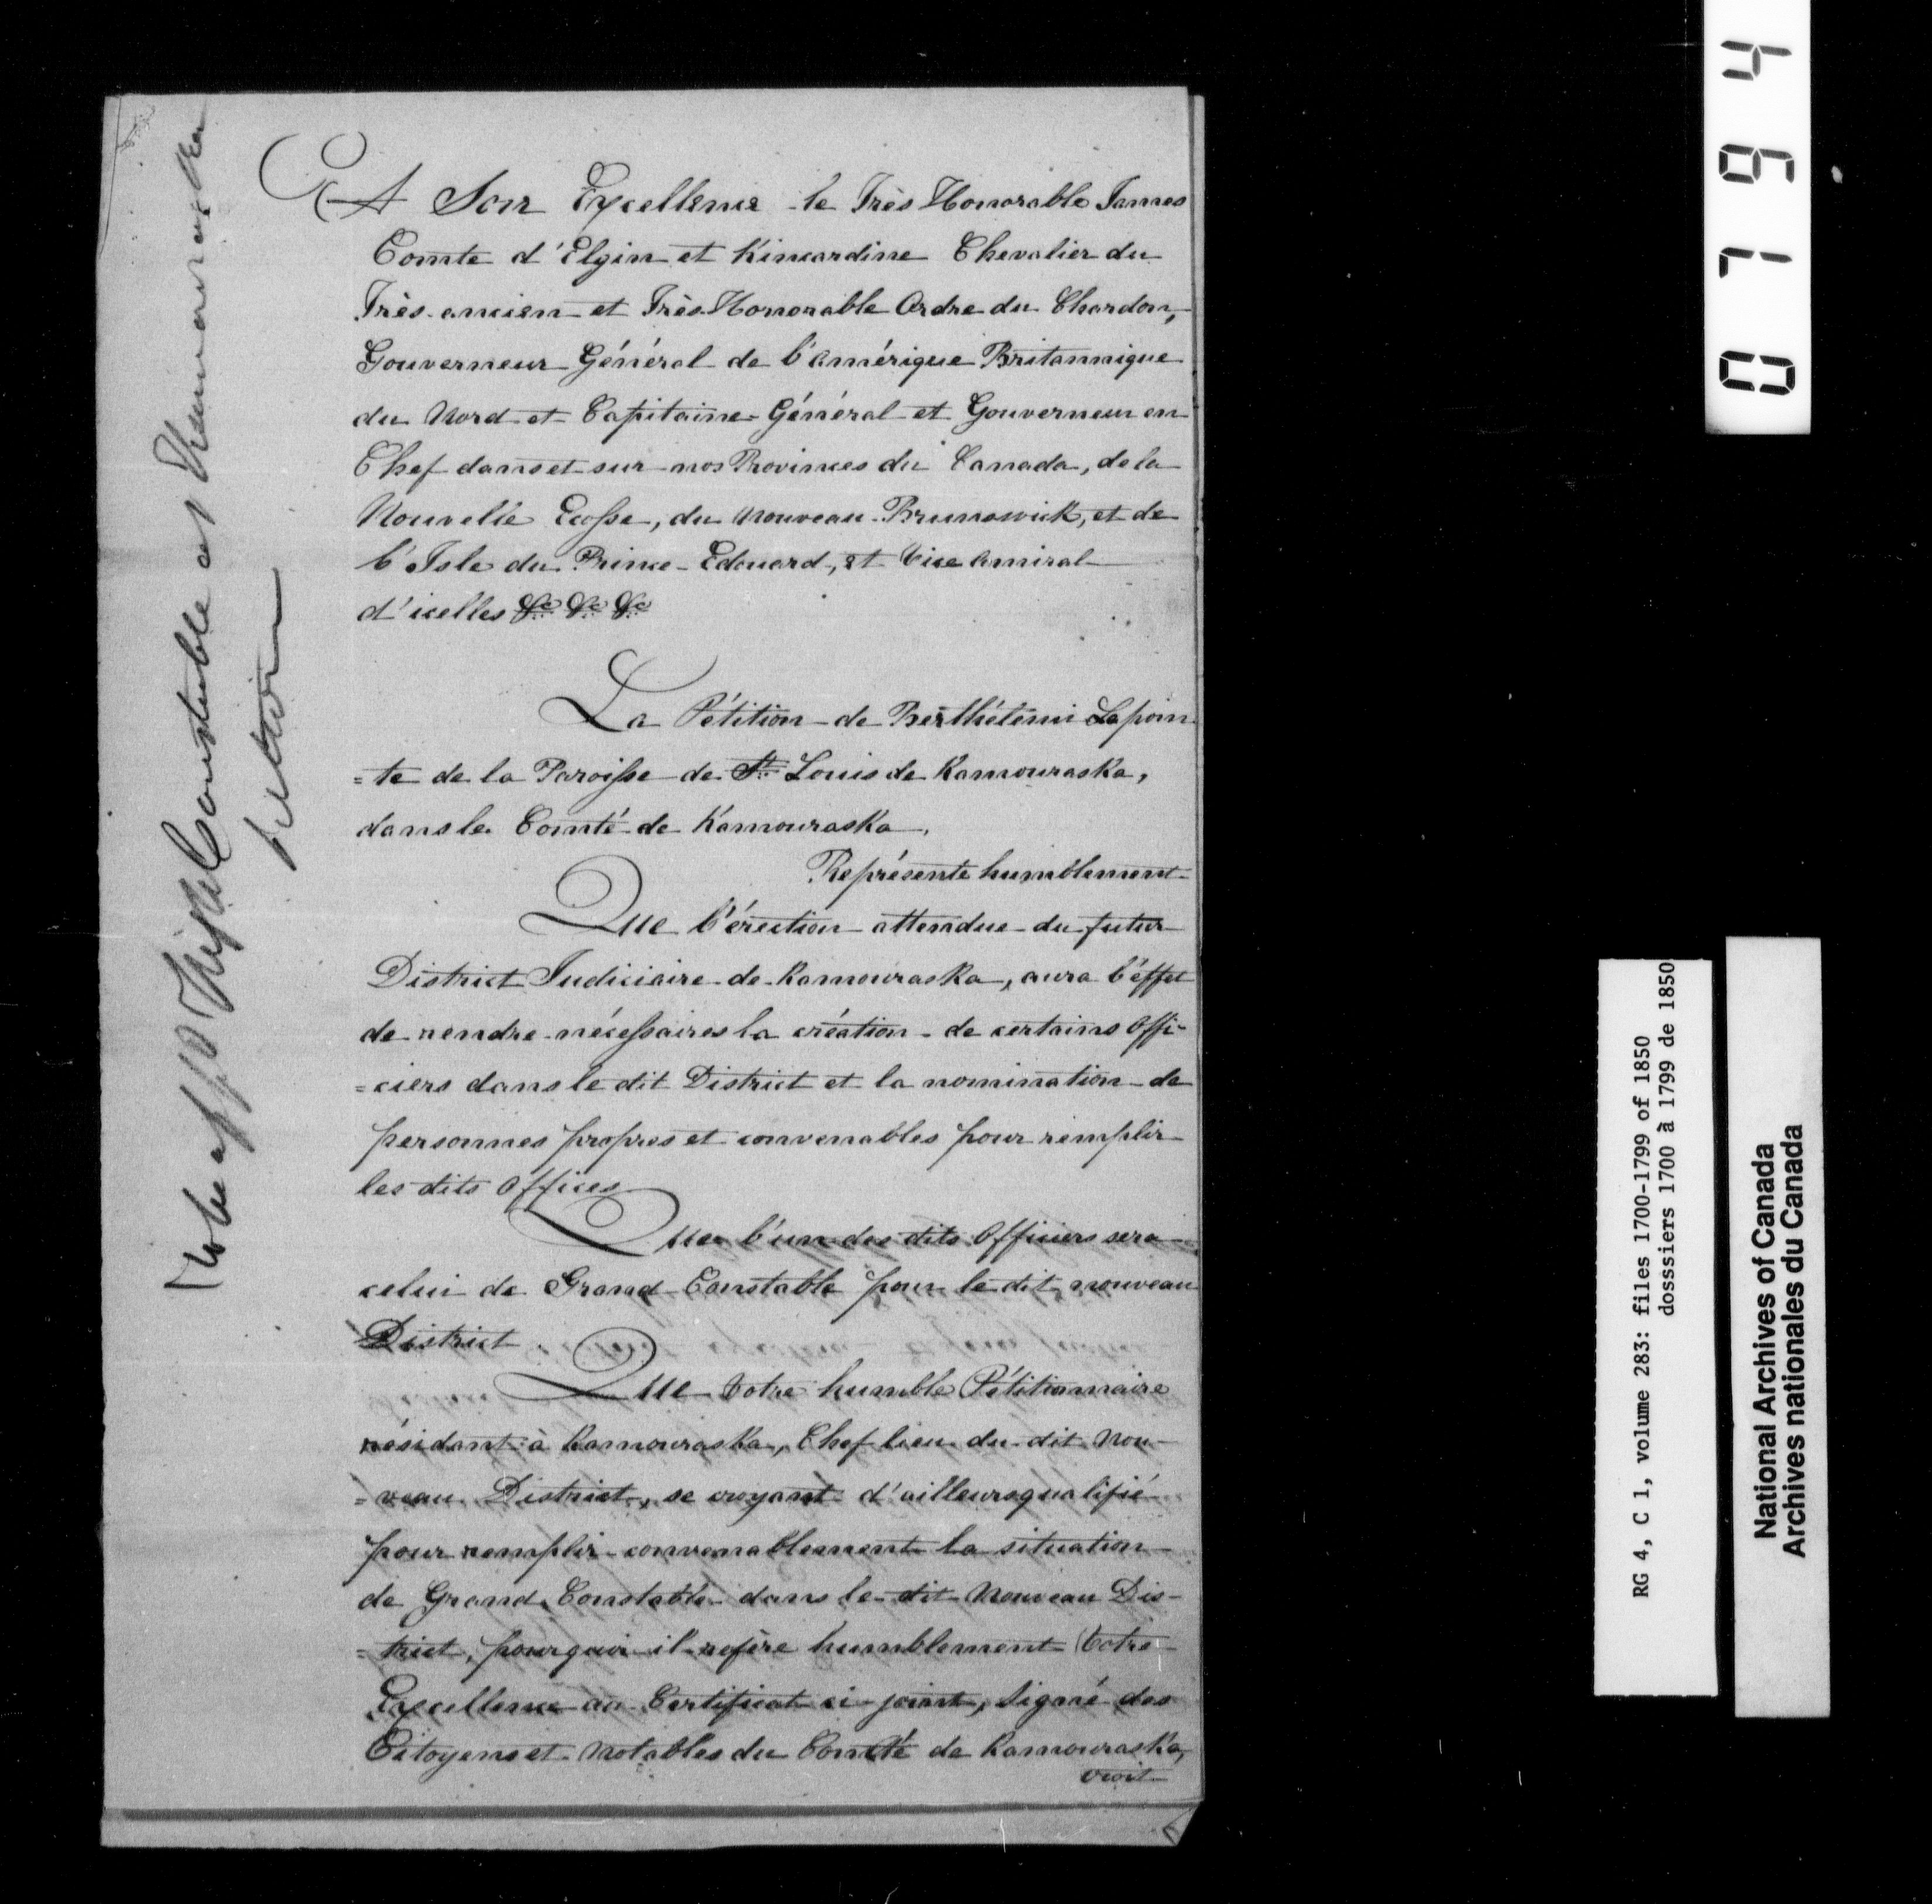 A Son Excellence le Très Honorable James
Comte d'Elgin et Kincardine Chevalier du
Très-ancien et Très-Honorable Ordre du Chardon,
Gouverneur Général de l'Amérique Britannique
du Nord et Capitaine-Général et Gouverneur en
Chef dans et sur nos Provinces du Canada, de la
Nouvelle Ecosse, du Nouveau-Brunswick, et de
l'Isle du Prince-Edouard, et Vice Amiral
d'icelles &c &c &c
La Pétition de Berthélémi Lapoin
=te de la Paroisse de St. Louis de Kamouraska,
dans le Comté de Kamouraska,
Représente humblement
Que l'érection attendue du futur
District Judiciaire de Kamouraska, aura l'effet
de rendre nécessaires la création de certains Offi-
=ciers dans le dit District et la nomination de
personnes propres et convenables pour remplir
les dits Offices
Que l'un des dits Officiers sera
celui de Grand Constable pour le dit nouveau
District.
Que Votre humble Pétitionnaire
résidant à Kamouraska, Chef lieu du dit Nou-
=veau District, se croyant d'ailleurs qualifié
pour remplir convenablement la situation
de Grand Constable dans le dit Nouveau Dis-
=trict, pourquoi il refère humblement Votre
Excellence au Certificat ci-joint, Signé des
Citoyens et Notables du Comté de Kamouraska,
croit
To be appd High Constable at Kamouraska
petition
0794
RG 4, C 1, volume 283: files 1700-1799 of 1850
dosssiers 1700 à 1799 de 1850
National Archives of Canada
Archives nationales du Canada